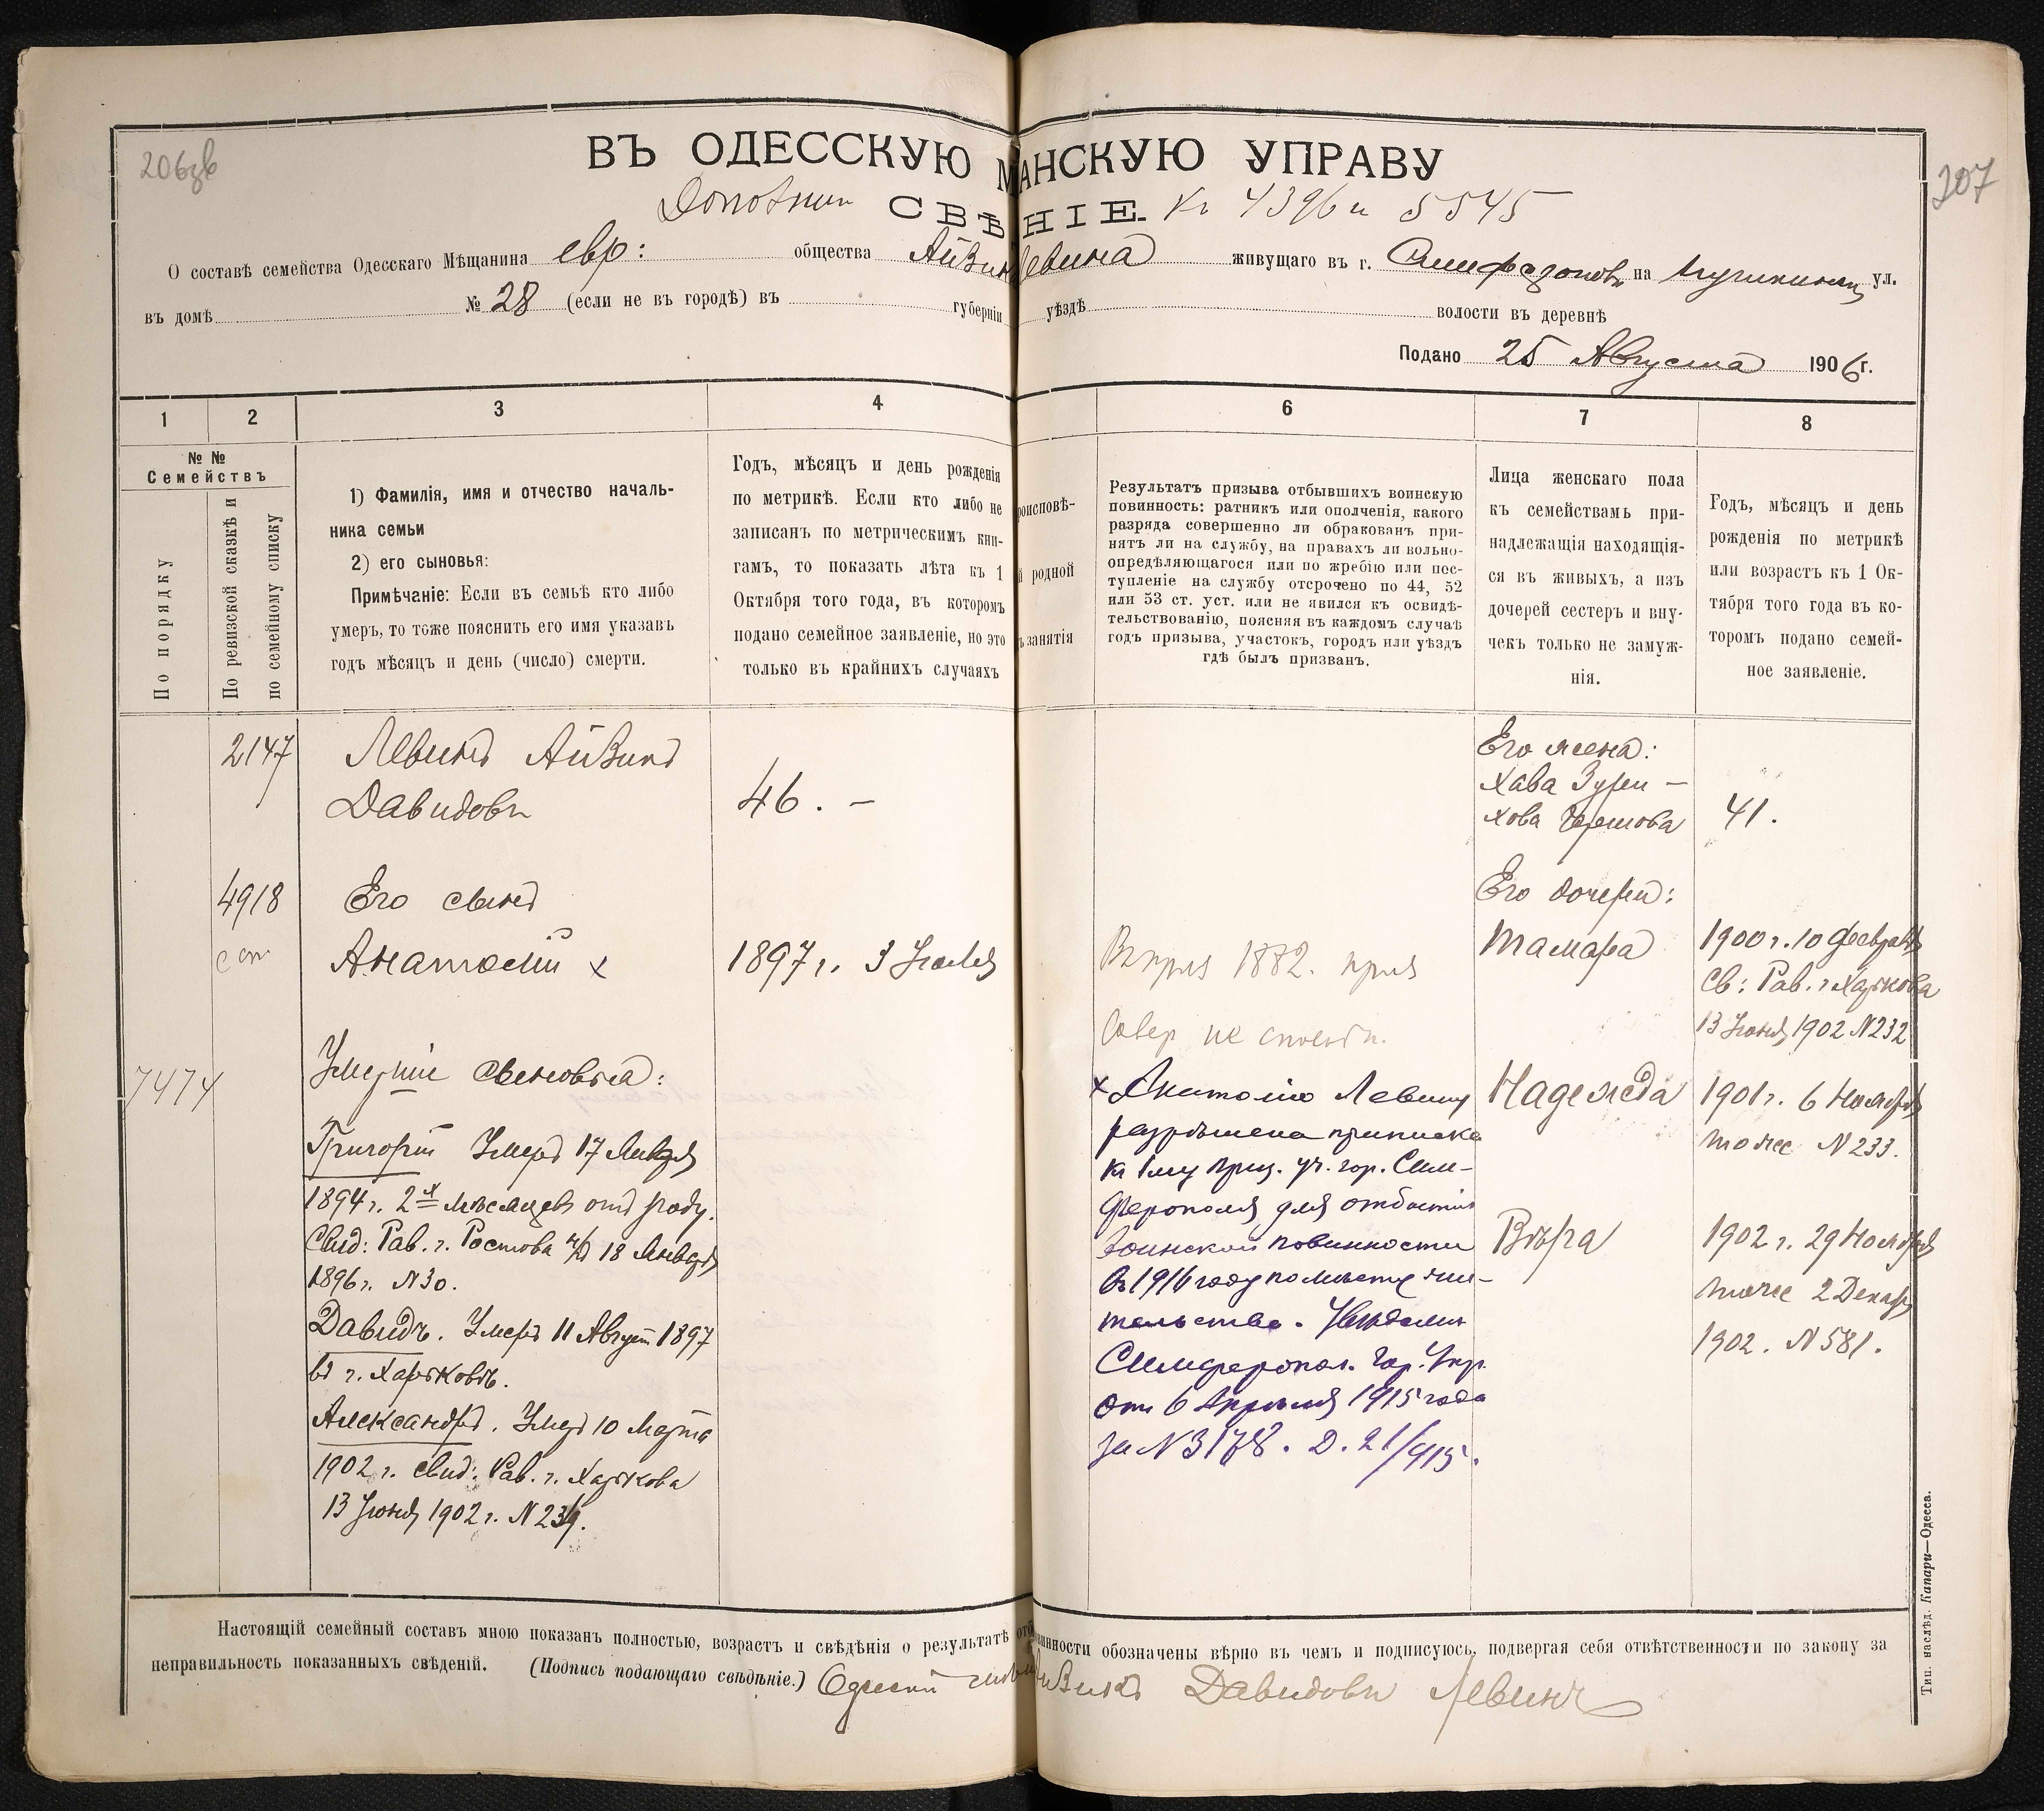 206зв
207
ВЪ ОДЕССКУЮ М АНСКУЮ УПРАВУ
СВѢ НІЕ. Къ 4396 и 5545
О составѣ семейства Одесскаго Мѣщанина евр: общества Айзик Левина живущаго въ г. на ул.
въ домѣ № 28 (если не въ городѣ) въ губерніи уѣздѣ волости въ деревнѣ
Подано 25 Августа 1906 г.
1 2 3 4 6 7 8
№ №
Семействъ
По порядку
По ревизской сказкѣ и
по семейному списку
1) Фамилія, имя и отчество началь-
ника семьи
2) его сыновья:
Примѣчаніе: Если въ семьѣ кто либо
умеръ, то тоже пояснить его имя указавъ
годъ мѣсяцъ и день (число) смерти.
Годъ, мѣсяцъ и день рожденія
по метрикѣ. Если кто либо не
записанъ по метрическимъ кни-
гамъ, то показать лѣта къ 1
Октября того года, въ которомъ
подано семейное заявленіе, но это
только въ крайнихъ случаяхъ
роисповѣ-
й родной
ъ занятія
Результатъ призыва отбывшихъ воинскую
повинность: ратникъ или ополченія, какого
разряда совершенно ли обракованъ при-
нятъ ли на службу, на правахъ ли вольно-
опредѣляющагося или по жребію или пос-
тупленіе на службу отсрочено по 44, 52
или 53 ст. уст. или не явился къ освидѣ-
тельствованію, поясняя въ каждомъ случаѣ
годъ призыва, участокъ, городъ или уѣздъ
гдѣ былъ призванъ.
Лица женскаго пола
къ семействамъ при-
надлежащія находящія-
ся въ живыхъ, а изъ
дочерей сестеръ и вну-
чекъ только не замуж-
нія.
Годъ, мѣсяцъ и день
рожденія по метрикѣ
или возрастъ къ 1 Ок-
тября того года въ ко-
торомъ подано семей-
ное заявленіе.
2147
Левинъ Айзикъ
Давидовъ
46. —
4918
Его сынъ
Анатолій x
1897 г. 3 Іюля
7474
Умершіе сыновья:
Григорій Умеръ 17 Января
1894 г. 2х мѣсяцевъ отъ роду.
Свид: Рав. г. Ростова н/Д 18 Января
1896 г. N 30.
Давидъ. Умеръ 11 Август 1897
въ г. Харьковѣ.
Александръ. Умеръ 10 Марта
1902 г. свид: Рав. г. Харькова
13 Іюня 1902 г. N 234.
1882.
x Анатолію Левину
разрѣшена приписка
къ 1му приз. уч. гор. Сим-
ферополя для отбытія
воинской повинности
въ 1916 году по мѣсту жи-
тельства. Увѣдомл
Симферопол. Гор. Упр.
отъ 6 Апрѣля 1915 года
за N 3178. Д. 21/915.
Его жена:
Хава
41.
Его дочери:
Тамара
1900 г. 10 Февраля
Св: Рав. г. Харькова
13 Іюня 1902 N 232
Надежда
1901 г. 6 Ноября
тоже N 233.
Вѣра
1902 г. 29 Ноября
тоже 2 Декабр
1902. N 581.
Настоящій семейный составъ мною показанъ полностью, возрастъ и свѣдѣнія о результатѣ отб винности обозначены вѣрно въ чемъ и подписуюсь, подвергая себя отвѣтственности по закону за
неправильность показанныхъ свѣденій. (Подпись подающаго свѣдѣніе.) Одесскій Айзикъ Давидовъ Левинъ
Тип. наслѣд. Капари—Одесса.